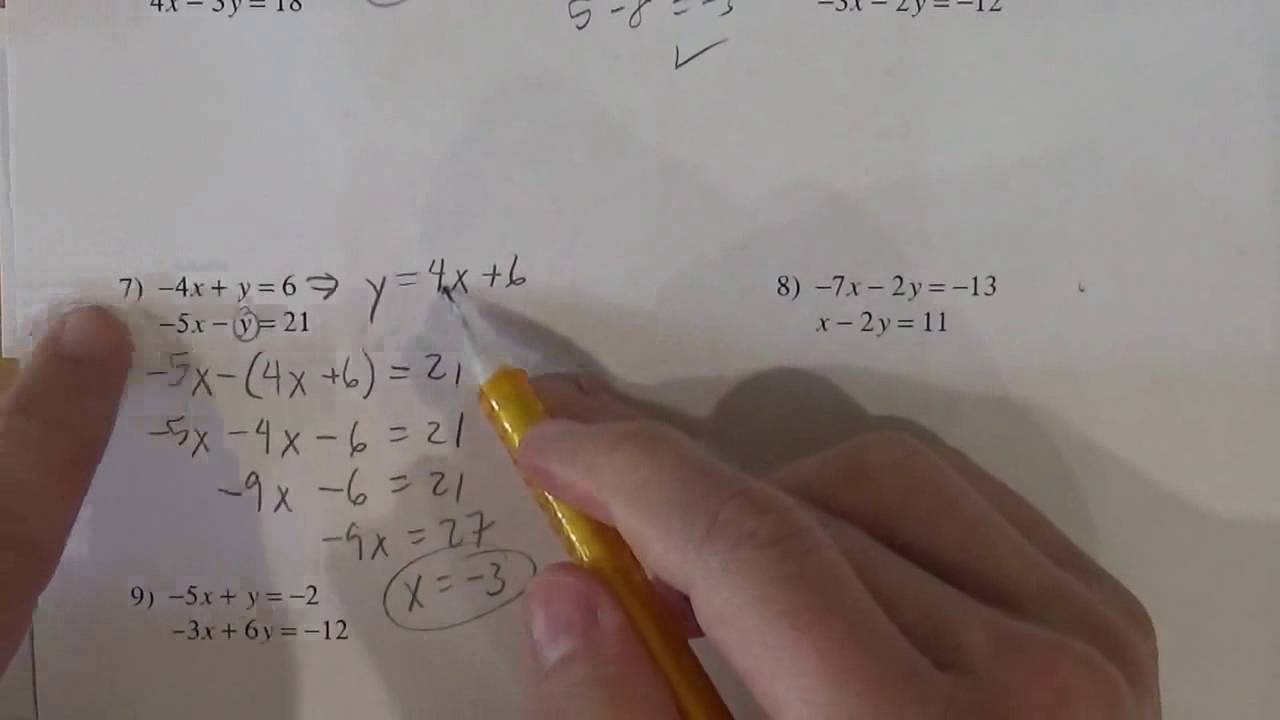 4x − 3y = 18
5 - 8 = -3
−3x − 2y = −12
✓
7) −4x + y = 6 ⇒ y = 4x + 6
−5x − y = 21
-5x - (4x + 6) = 21
-5x - 4x - 6 = 21
-9x - 6 = 21
-9x = 27
x = -3
8) −7x − 2y = −13
x − 2y = 11
9) −5x + y = −2
−3x + 6y = −12